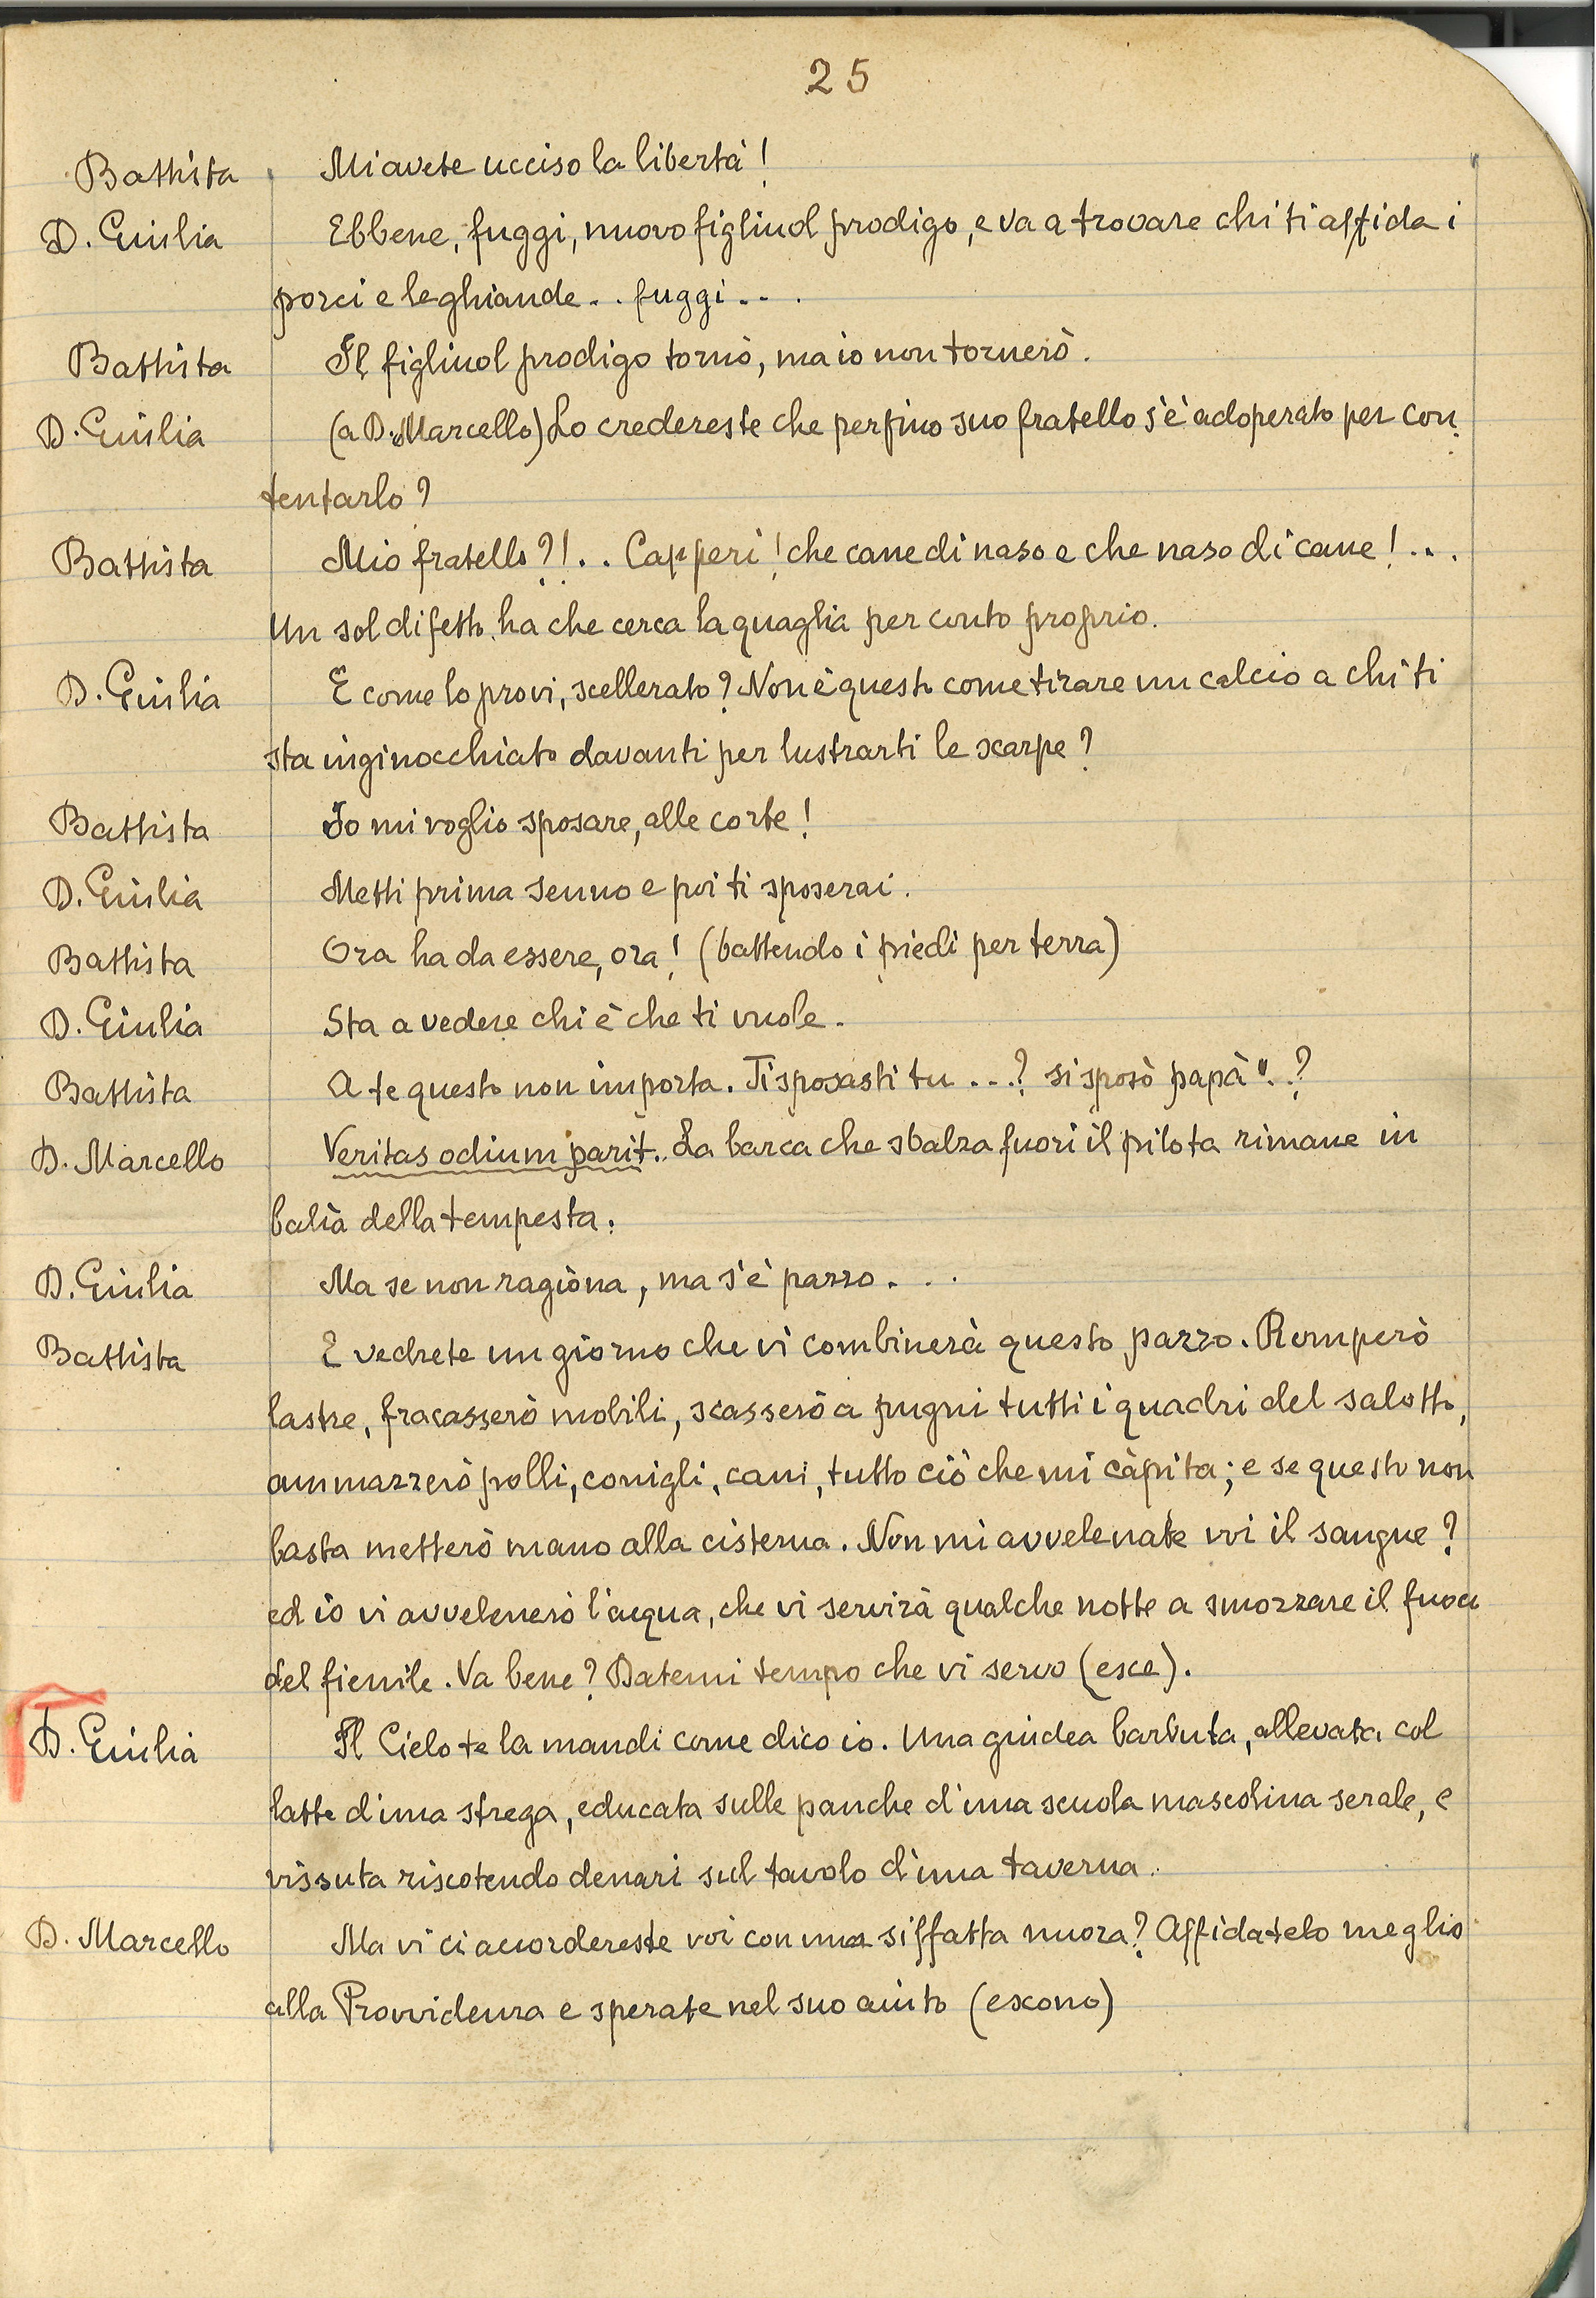 25
Battista Mi avete ucciso la libertà!
D. Giulia Ebbene, fuggi, nuovo figliuol prodigo, e va a trovare chi ti affida i
porci e le ghiande.. fuggi...
Battista Il figliuol prodigo tornò, ma io non tornerò.
D. Giulia (a D. Marcello) Lo credereste che perfino suo fratello s'è adoperato per con
tentarlo?
Battista Mio fratello?!.. Capperi! che cane di naso e che naso di cane!...
Un sol difetto ha che cerca la quaglia per conto proprio.
D. Giulia E come lo provi, scellerato? Non è questo come tirare un calcio a chi ti
sta inginocchiato davanti per lustrarti le scarpe?
Battista Io mi voglio sposare, alle corte!
D. Giulia Metti prima senno e poi ti sposerai.
Battista Ora ha da essere, ora! (battendo i piedi per terra)
D. Giulia Sta a vedere chi è che ti vuole.
Battista A te questo non importa. Ti sposasti tu...? si sposò papà...?
D. Marcello Veritas odium parit. La barca che sbalza fuori il pilota rimane in
balìa della tempesta.
D. Giulia Ma se non ragiona, ma s'è pazzo...
Battista E vedrete un giorno che vi combinerà questo pazzo. Romperò
lastre, fracasserò mobili, scasserò a pugni tutti i quadri del salotto,
ammazzerò polli, conigli, cani, tutto ciò che mi càpita; e se questo non
basta metterò mano alla cisterna. Non mi avvelenate voi il sangue?
ed io vi avvelenerò l'acqua, che vi servirà qualche notte a smorzare il fuoco
del fienile. Va bene? Datemi tempo che vi servo (esce).
D. Giulia Il Cielo te la mandi come dico io. Una giudea barbuta, allevata col
latte d'una strega, educata sulle panche d'una scuola mascolina serale, e
vissuta riscotendo denari sul tavolo d'una taverna.
D. Marcello Ma vi ci accordereste voi con una siffatta nuora? Affidatelo meglio
alla Provvidenza e sperate nel suo aiuto (escono)